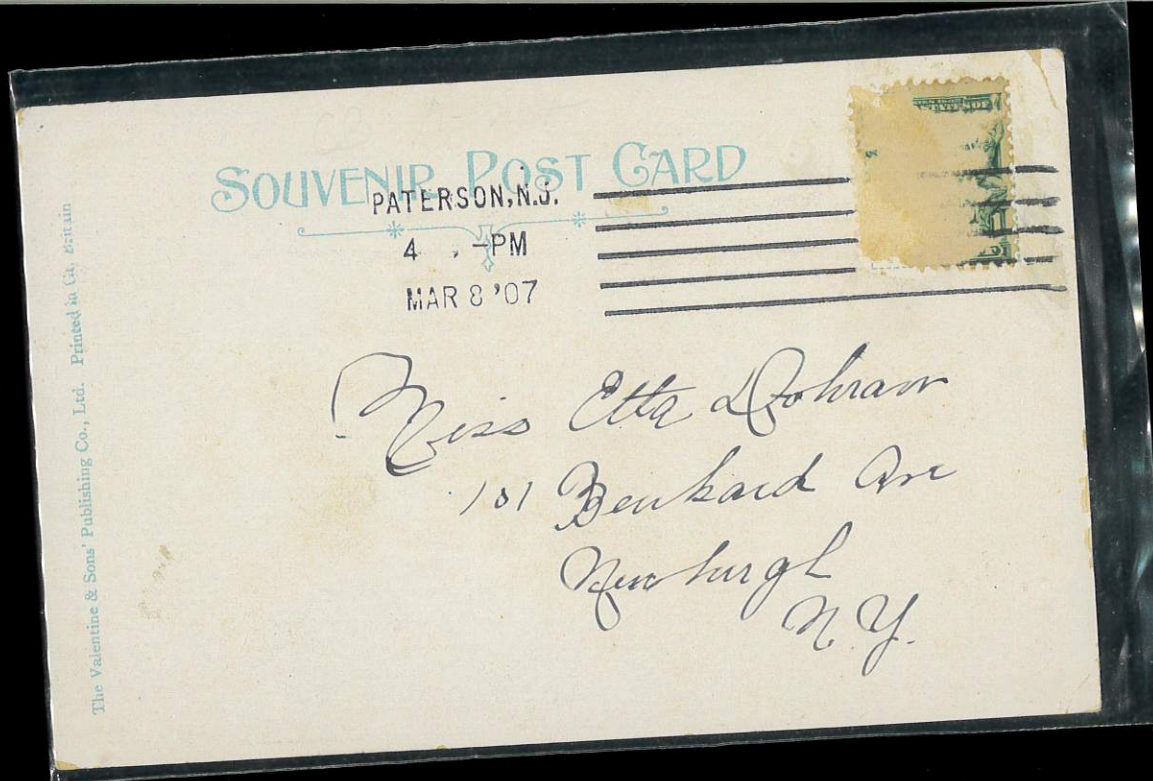 SOUVENIR POST CARD
PATERSON, N.J.
4 -PM
MAR 8 '07
Miss Etta Dohrman
101 Benkard Ave
Newburgh
N.Y.
The Valentine & Sons' Publishing Co., Ltd. Printed in Gt. Britain
STATES OF